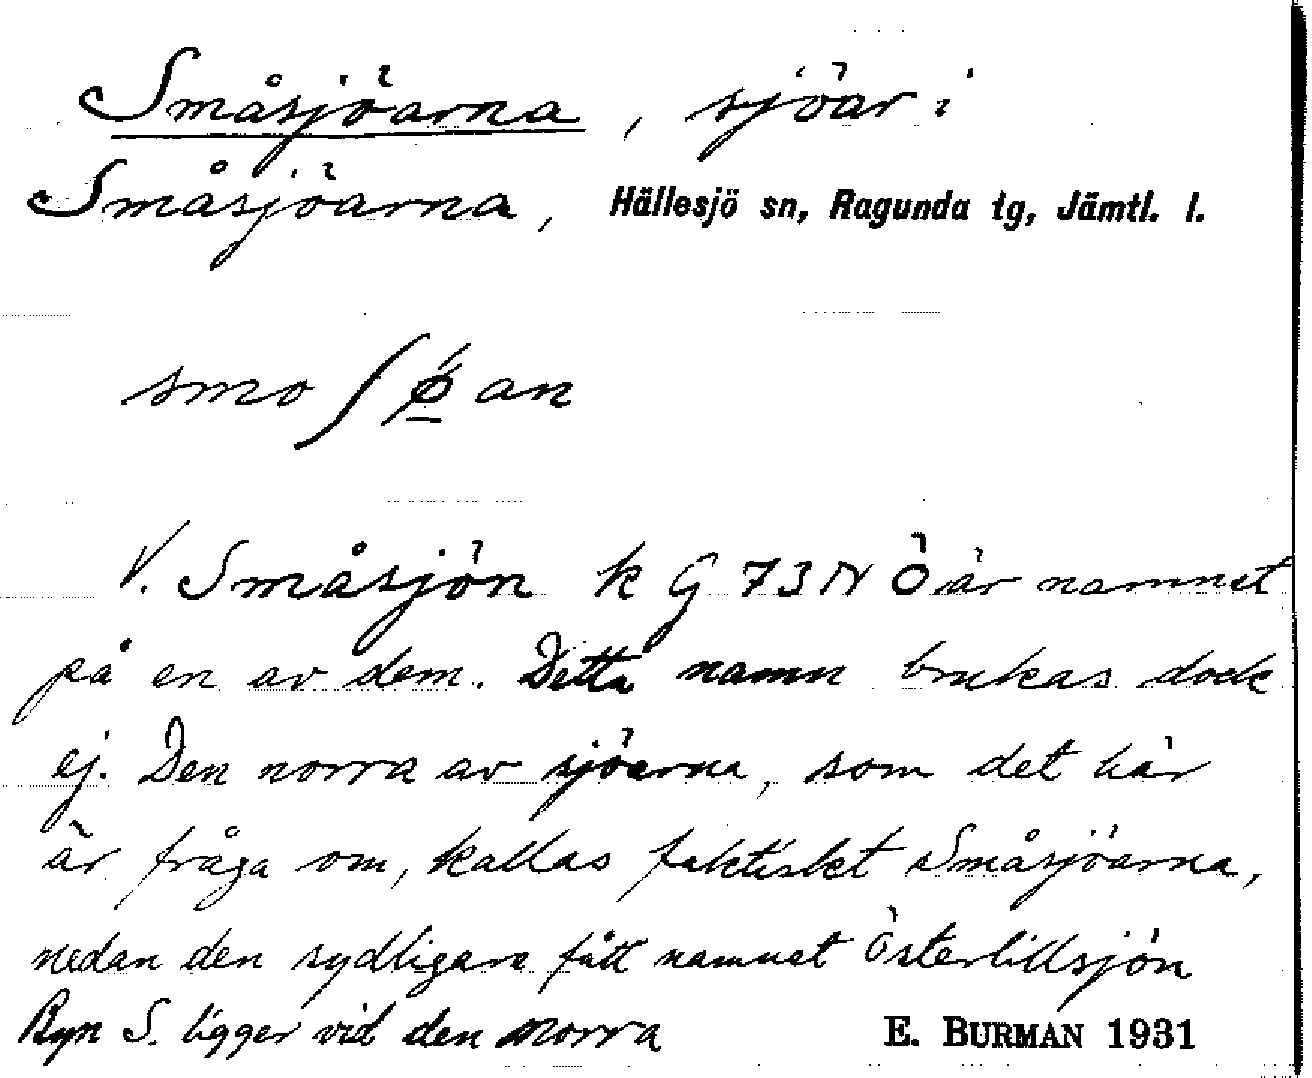 Småsjöarna, sjöar i
Småsjöarna, Hällesjö sn, Ragunda tg, Jämtl. l.
smo ʃ ǿ̱ an
V. Småsjön k G 73 N Ö är namnet
på en av dem. Detta namn brukas dock
ej. Den norra av sjöarna, som det här
är fråga om, kallas faktiskt Småsjöarna,
medan den sydligare fått namnet Österlillsjön
Byn S. ligger vid den norra
E. BURMAN 1931